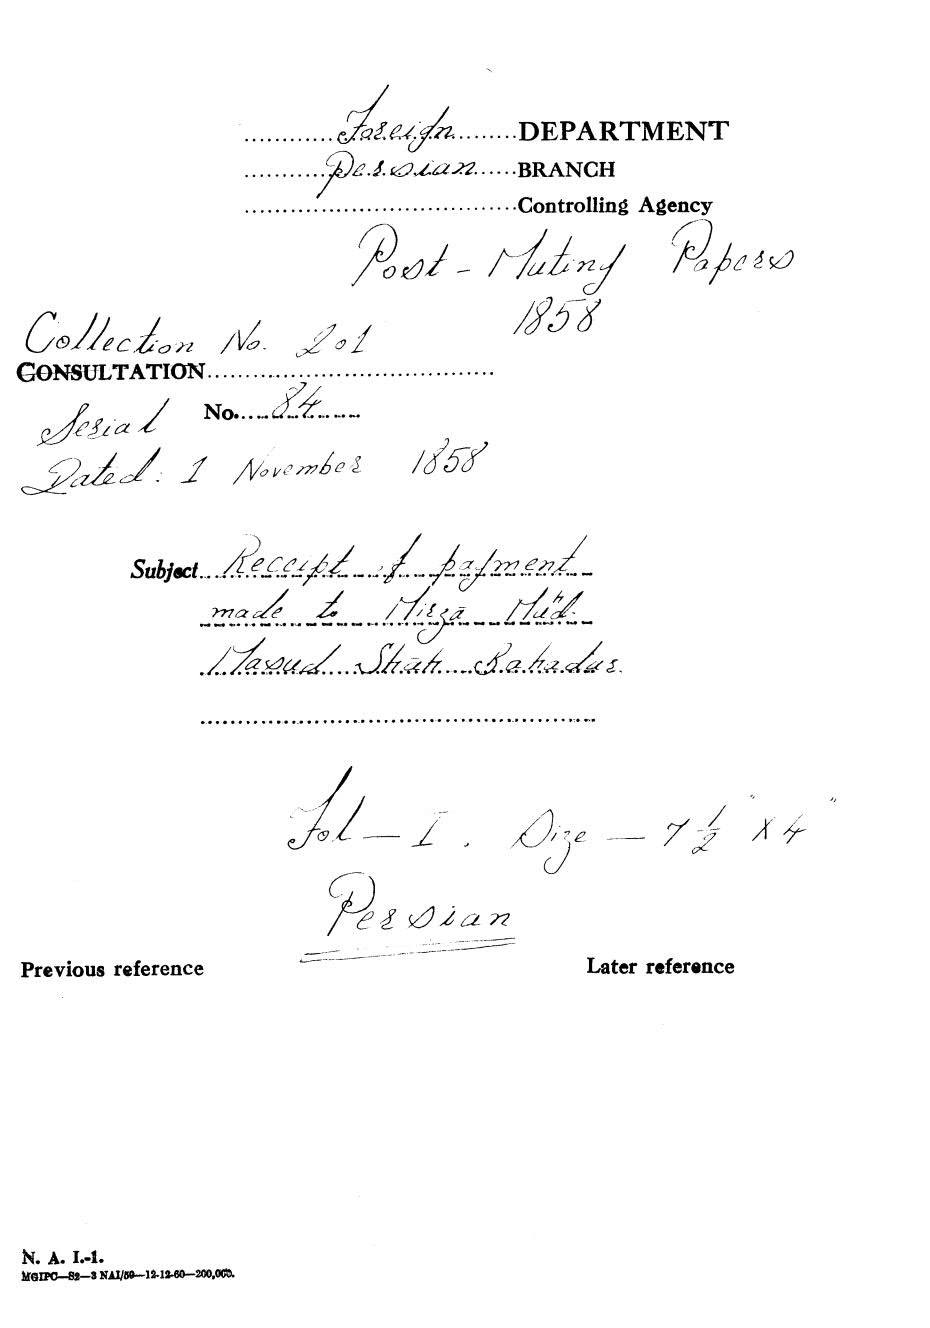 Foreign DEPARTMENT
Persian BRANCH
Controlling Agency
Post - Mutiny Papers
1858
Collection No. 201
CONSULTATION
Serial No. 84
Dated: 1 November 1858
Subject Receipt of payment
made to Mirzā Mūd.
Masud Shāh Bahadur.
Fol — I. Size — 7 1/2" X 4"
Persian
Previous reference Later reference
N. A. I.-1.
MGIPC—S2—3 NAI/59—12-12-60—200,000.